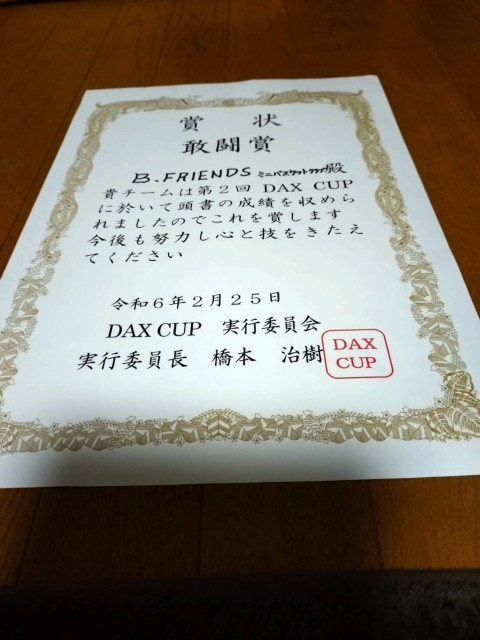 賞 状
敢闘賞
B.FRIENDS ミニバスケットクラブ殿
貴チームは第２回 DAX CUP
に於いて頭書の成績を収めら
れましたのでこれを賞します
今後も努力し心と技をきたえ
てください
令和６年２月２５日
DAX CUP 実行委員会
実行委員長 橋本 治樹
DAX
CUP